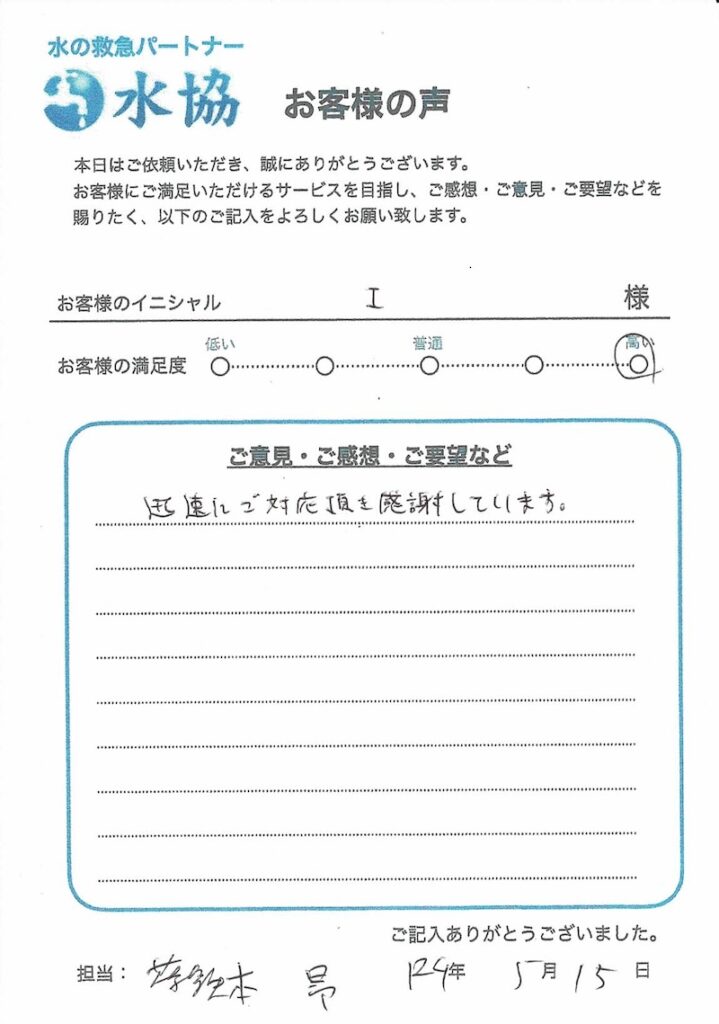 水の救急パートナー
水協
お客様の声
本日はご依頼いただき、誠にありがとうございます。
お客様にご満足いただけるサービスを目指し、ご感想・ご意見・ご要望などを
賜りたく、以下のご記入をよろしくお願い致します。
お客様のイニシャル I 様
低い 普通 高い
お客様の満足度
ご意見・ご感想・ご要望など
迅速にご対応頂き感謝しています。
ご記入ありがとうございました。
担当： 本 昂 年 5月15日